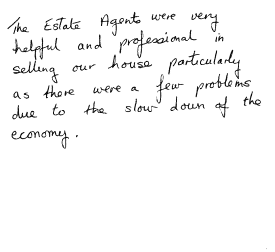 The Estate Agents were very
helpful and professional in
selling our house particularly
as there were a few problems
due to the slow down of the
economy.